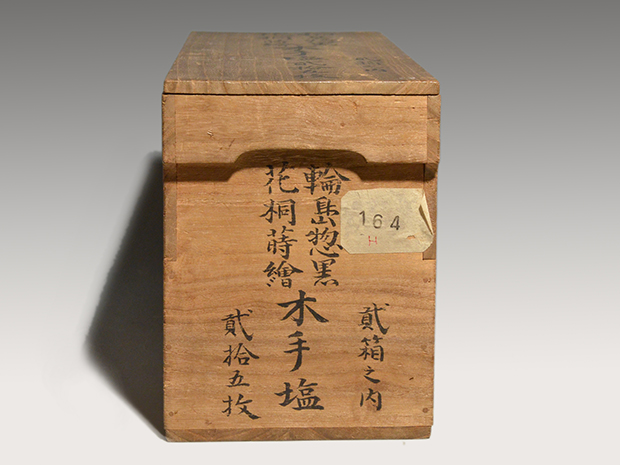 輪島惣黒
花桐蒔繪
木手塩
貳箱之内
貳拾五枚
164
H